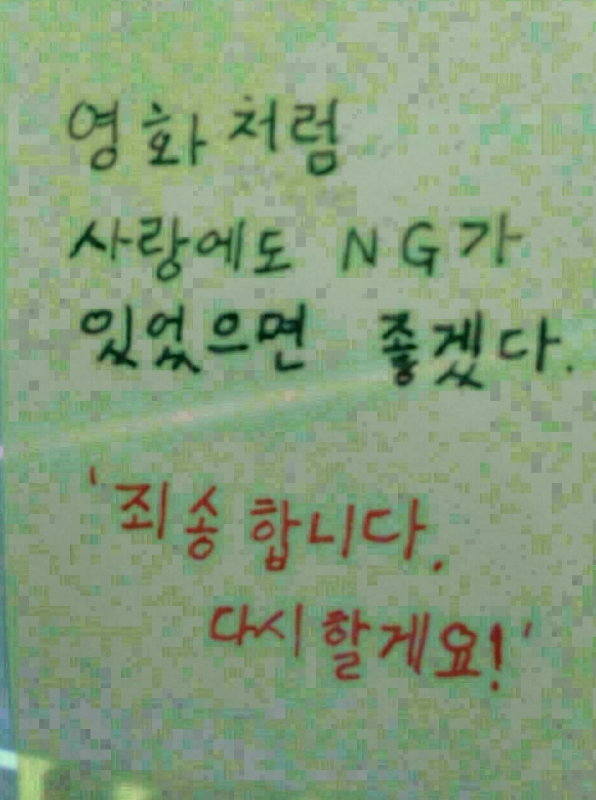 영화처럼
사랑에도 NG가
있었으면 좋겠다.
'죄송합니다.
다시 할게요!'